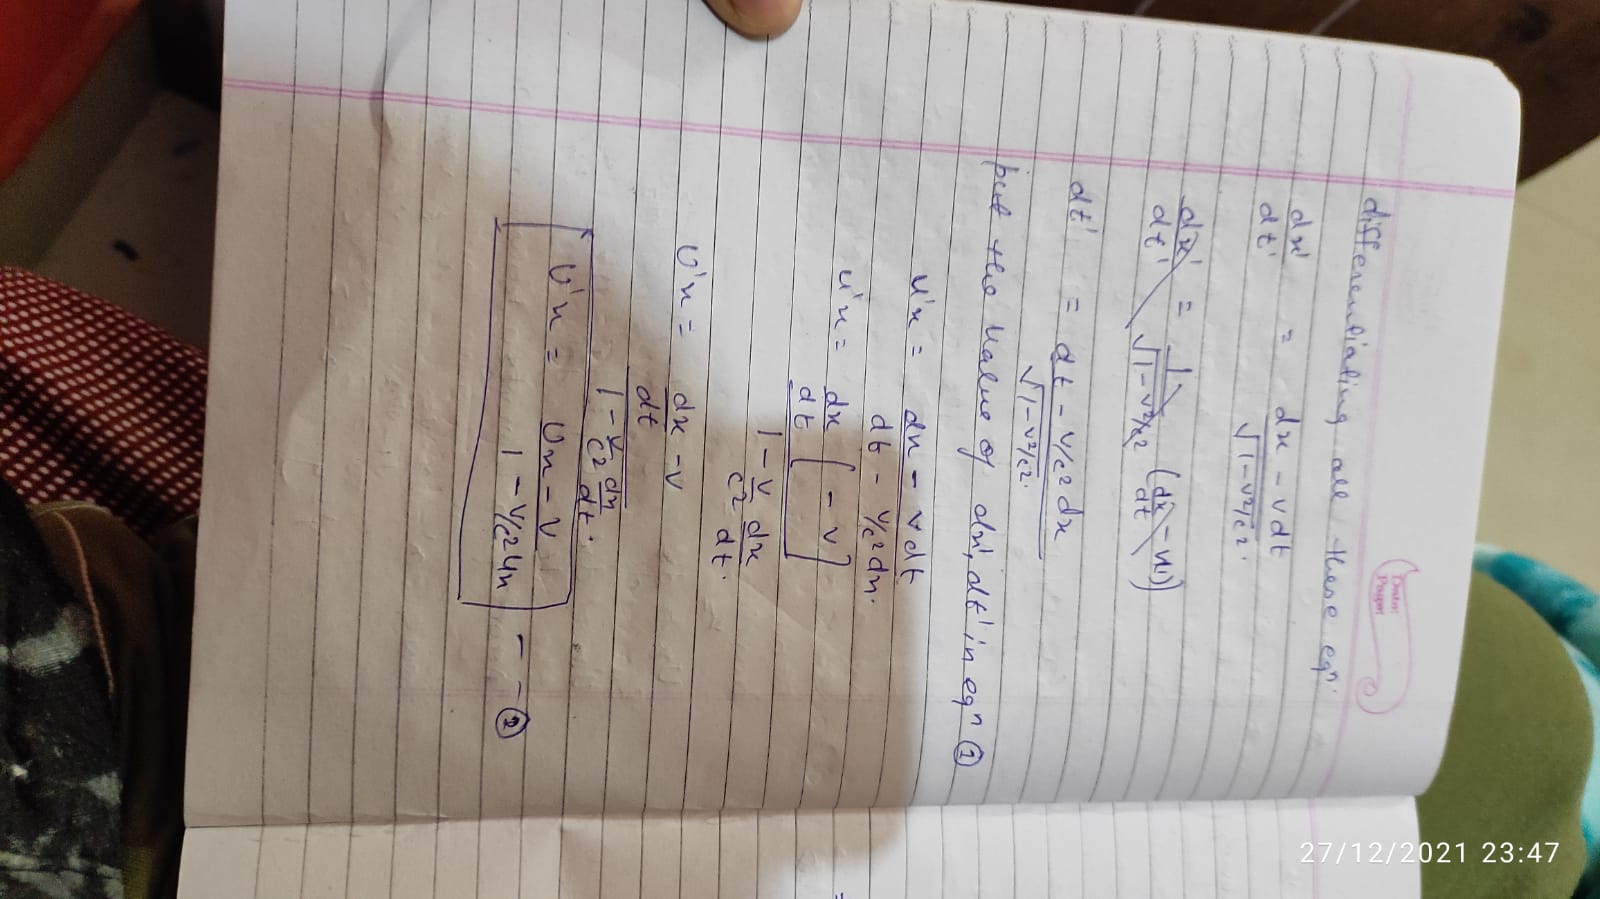 differentiating all these eqn.
dx'/dt' = dx - vdt / √1-v²/c².
dx'/dt' = 1/√1-v²/c² (dx/dt - v)
dt' = dt - v/c² dx / √1-v²/c².
put the value of dx', dt' in eqn ①
u'x = dx - vdt / dt - v/c² dx.
u'x = dx/dt [ - v] / 1 - v/c² dx/dt.
U'x = dx/dt - v / 1 - v/c² dx/dt.
U'x = Ux - v / 1 - v/c² ux - - - ②
27/12/2021 23:47